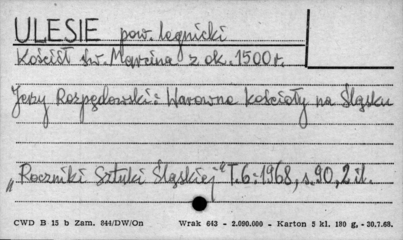 ULESIE pow. legnicki
Kościół św. Marcina z ok. 1500 r.
Jerzy Rozpędowski: Warowne kościoły na Śląsku
„Roczniki Sztuki Śląskiej" T.6:1968, s.90, 2 il.
CWD B 15 b Zam. 844/DW/On Wrak 643 - 2.090.000 - Karton 5 kl. 180 g, - 30.7.68.